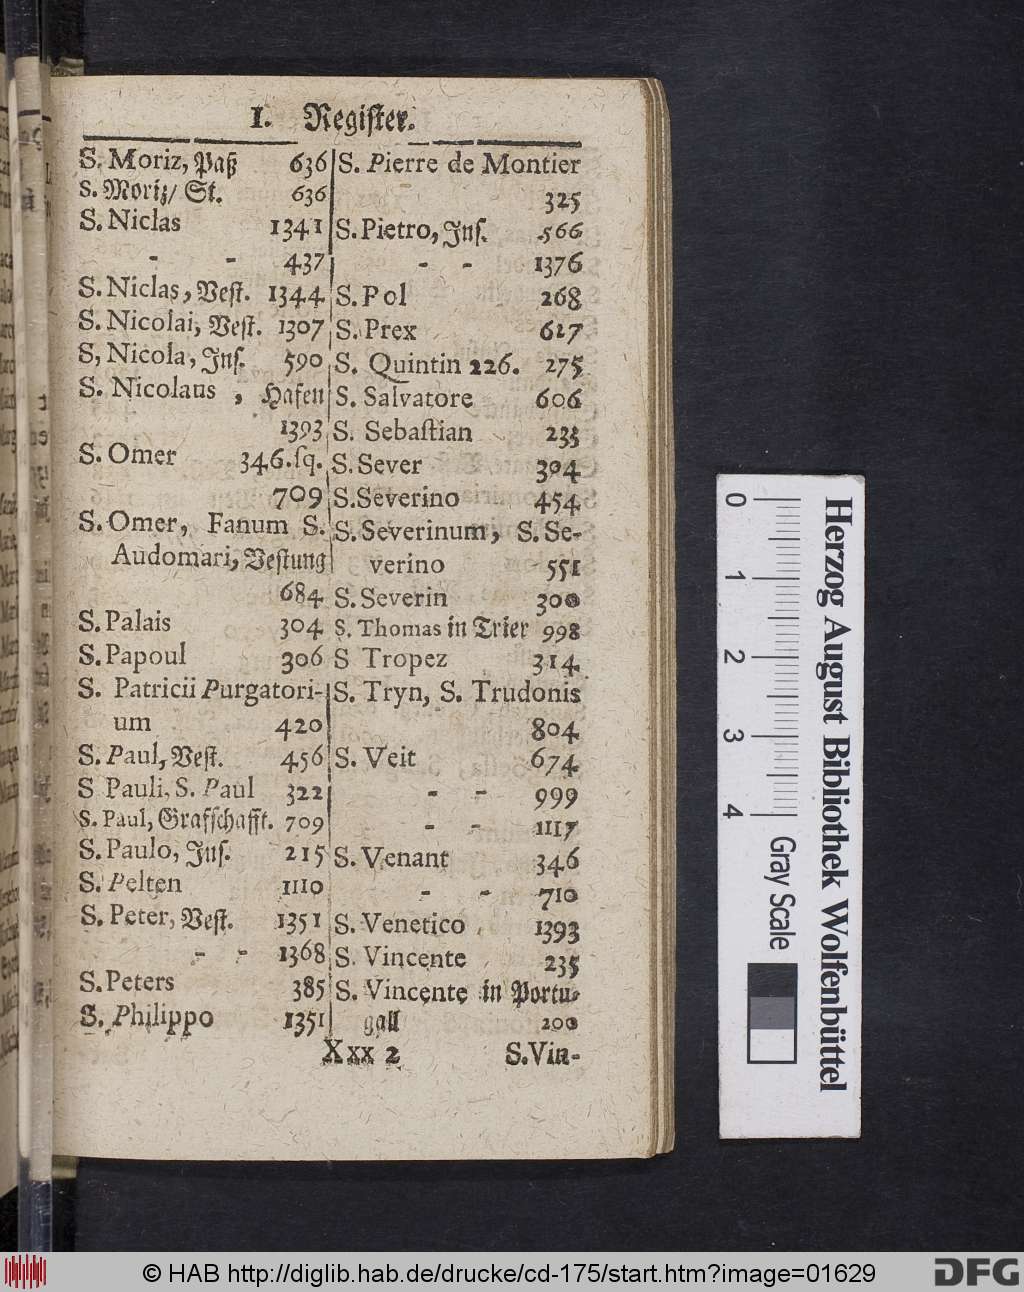 I. Register.
S. Moriz, Paß 636
S. Moriz/ St. 636
S. Niclas 1341
- - 437
S. Niclas, Vest. 1344
S. Nicolai, Vest. 1307
S, Nicola, Ins. 590
S. Nicolaus , Hafen
1393
S. Omer 346. sq.
709
S. Omer, Fanum S.
Audomari, Vestung
684
S. Palais 304
S. Papoul 306
S. Patricii Purgatori-
um 420
S. Paul, Vest. 456
S Pauli, S. Paul 322
S. Paul, Grafschafft. 709
S. Paulo, Ins. 215
S. Pelten 1110
S. Peter, Vest. 1351
- - 1368
S. Peters 385
S. Philippo 1351
S. Pierre de Montier
325
S. Pietro, Ins. 566
- - 1376
S. Pol 268
S. Prex 627
S. Quintin 226. 275
S. Salvatore 606
S. Sebastian 233
S. Sever 304
S. Severino 454
S. Severinum, S. Se-
verino 551
S. Severin 300
S. Thomas in Trier 998
S Tropez 314
S. Tryn, S. Trudonis
804
S. Veit 674
- - 999
- - 1117
S. Venant 346
- - 710
S. Venetico 1393
S. Vincente 235
S. Vincente in Portu-
gall 200
Xxx 2 S. Vin-
0 1 2 3 4
Herzog August Bibliothek Wolfenbüttel
Gray Scale
© HAB http://diglib.hab.de/drucke/cd-175/start.htm?image=01629
DFG